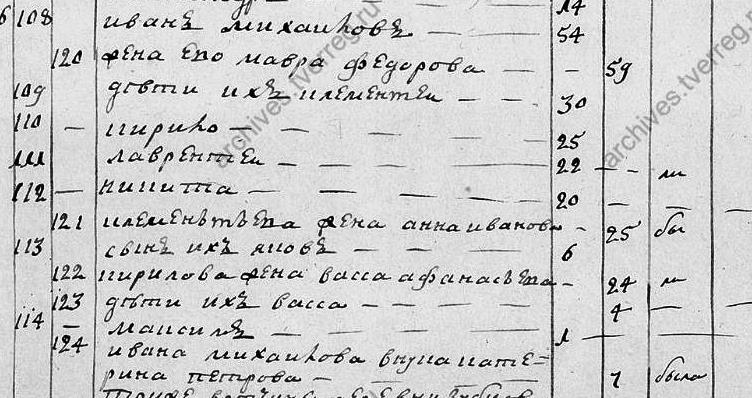 14
6 108 иванъ михаиловъ 54
120 жена ево мавра федорова 59
109 дѣти ихъ клементеи 30
110 кирило 25
111 лаврентеи 22
112 никита 20
121 клеменътьева жена анна иванова 25 бы
113 сынъ ихъ яковъ 6
122 кирилова жена васса афанасьева 24
123 дѣти ихъ васса 4
114 максимъ 1
124 ивана михаилова внука кате=
рина петрова 7 была
archives.tverreg.ru
archives.tverreg.ru